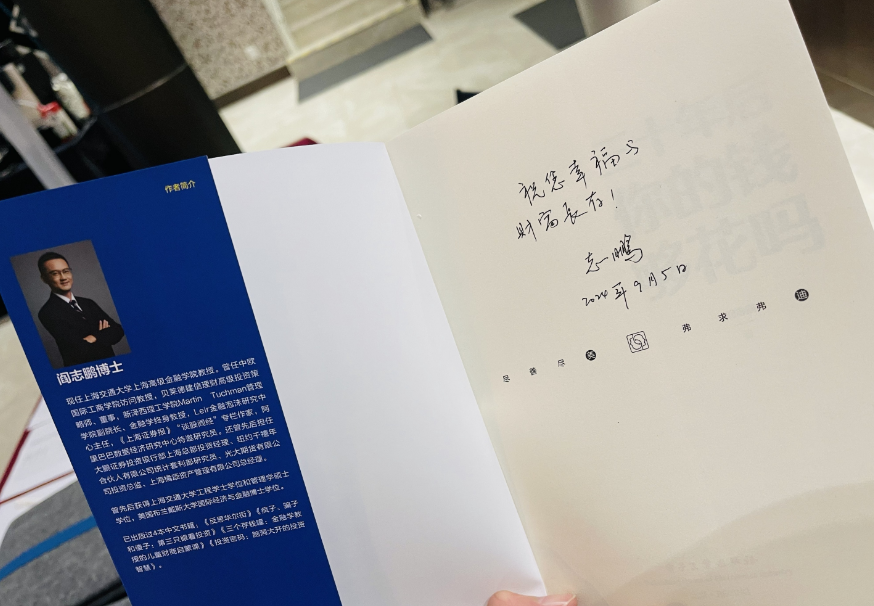 作者简介
阎志鹏博士
现任上海交通大学上海高级金融学院教授，曾任中欧
国际工商学院访问教授，贝莱德建信理财高级投资策
略师、董事，新泽西理工学院Martin Tuchman管理
学院副院长、金融学终身教授，Leir金融泡沫研究中
心主任，《上海证券报》“谈股阅经”专栏作家，阿
里巴巴数据经济研究中心特邀研究员。还曾先后担任
大鹏证券投资银行部上海总部投资经理、纽约千禧年
合伙人有限公司统计套利部研究员、光大期货有限公
司投资总监、上海
资产管理有限公司总经理。
曾先后获得上海交通大学工程学士学位和管理学硕士
学位，美国布兰戴斯大学国际经济与金融博士学位。
已出版过4本中文书籍：《反思华尔街》《疯子、骗子
和傻子：第三只眼看投资》《三个存钱罐：金融学教
授的儿童财商启蒙课》《投资密码：脑洞大开的投资
智慧》。
祝您幸福与
财富长存！
志鹏
2024年9月5日
尽善尽美 弗求弗迪